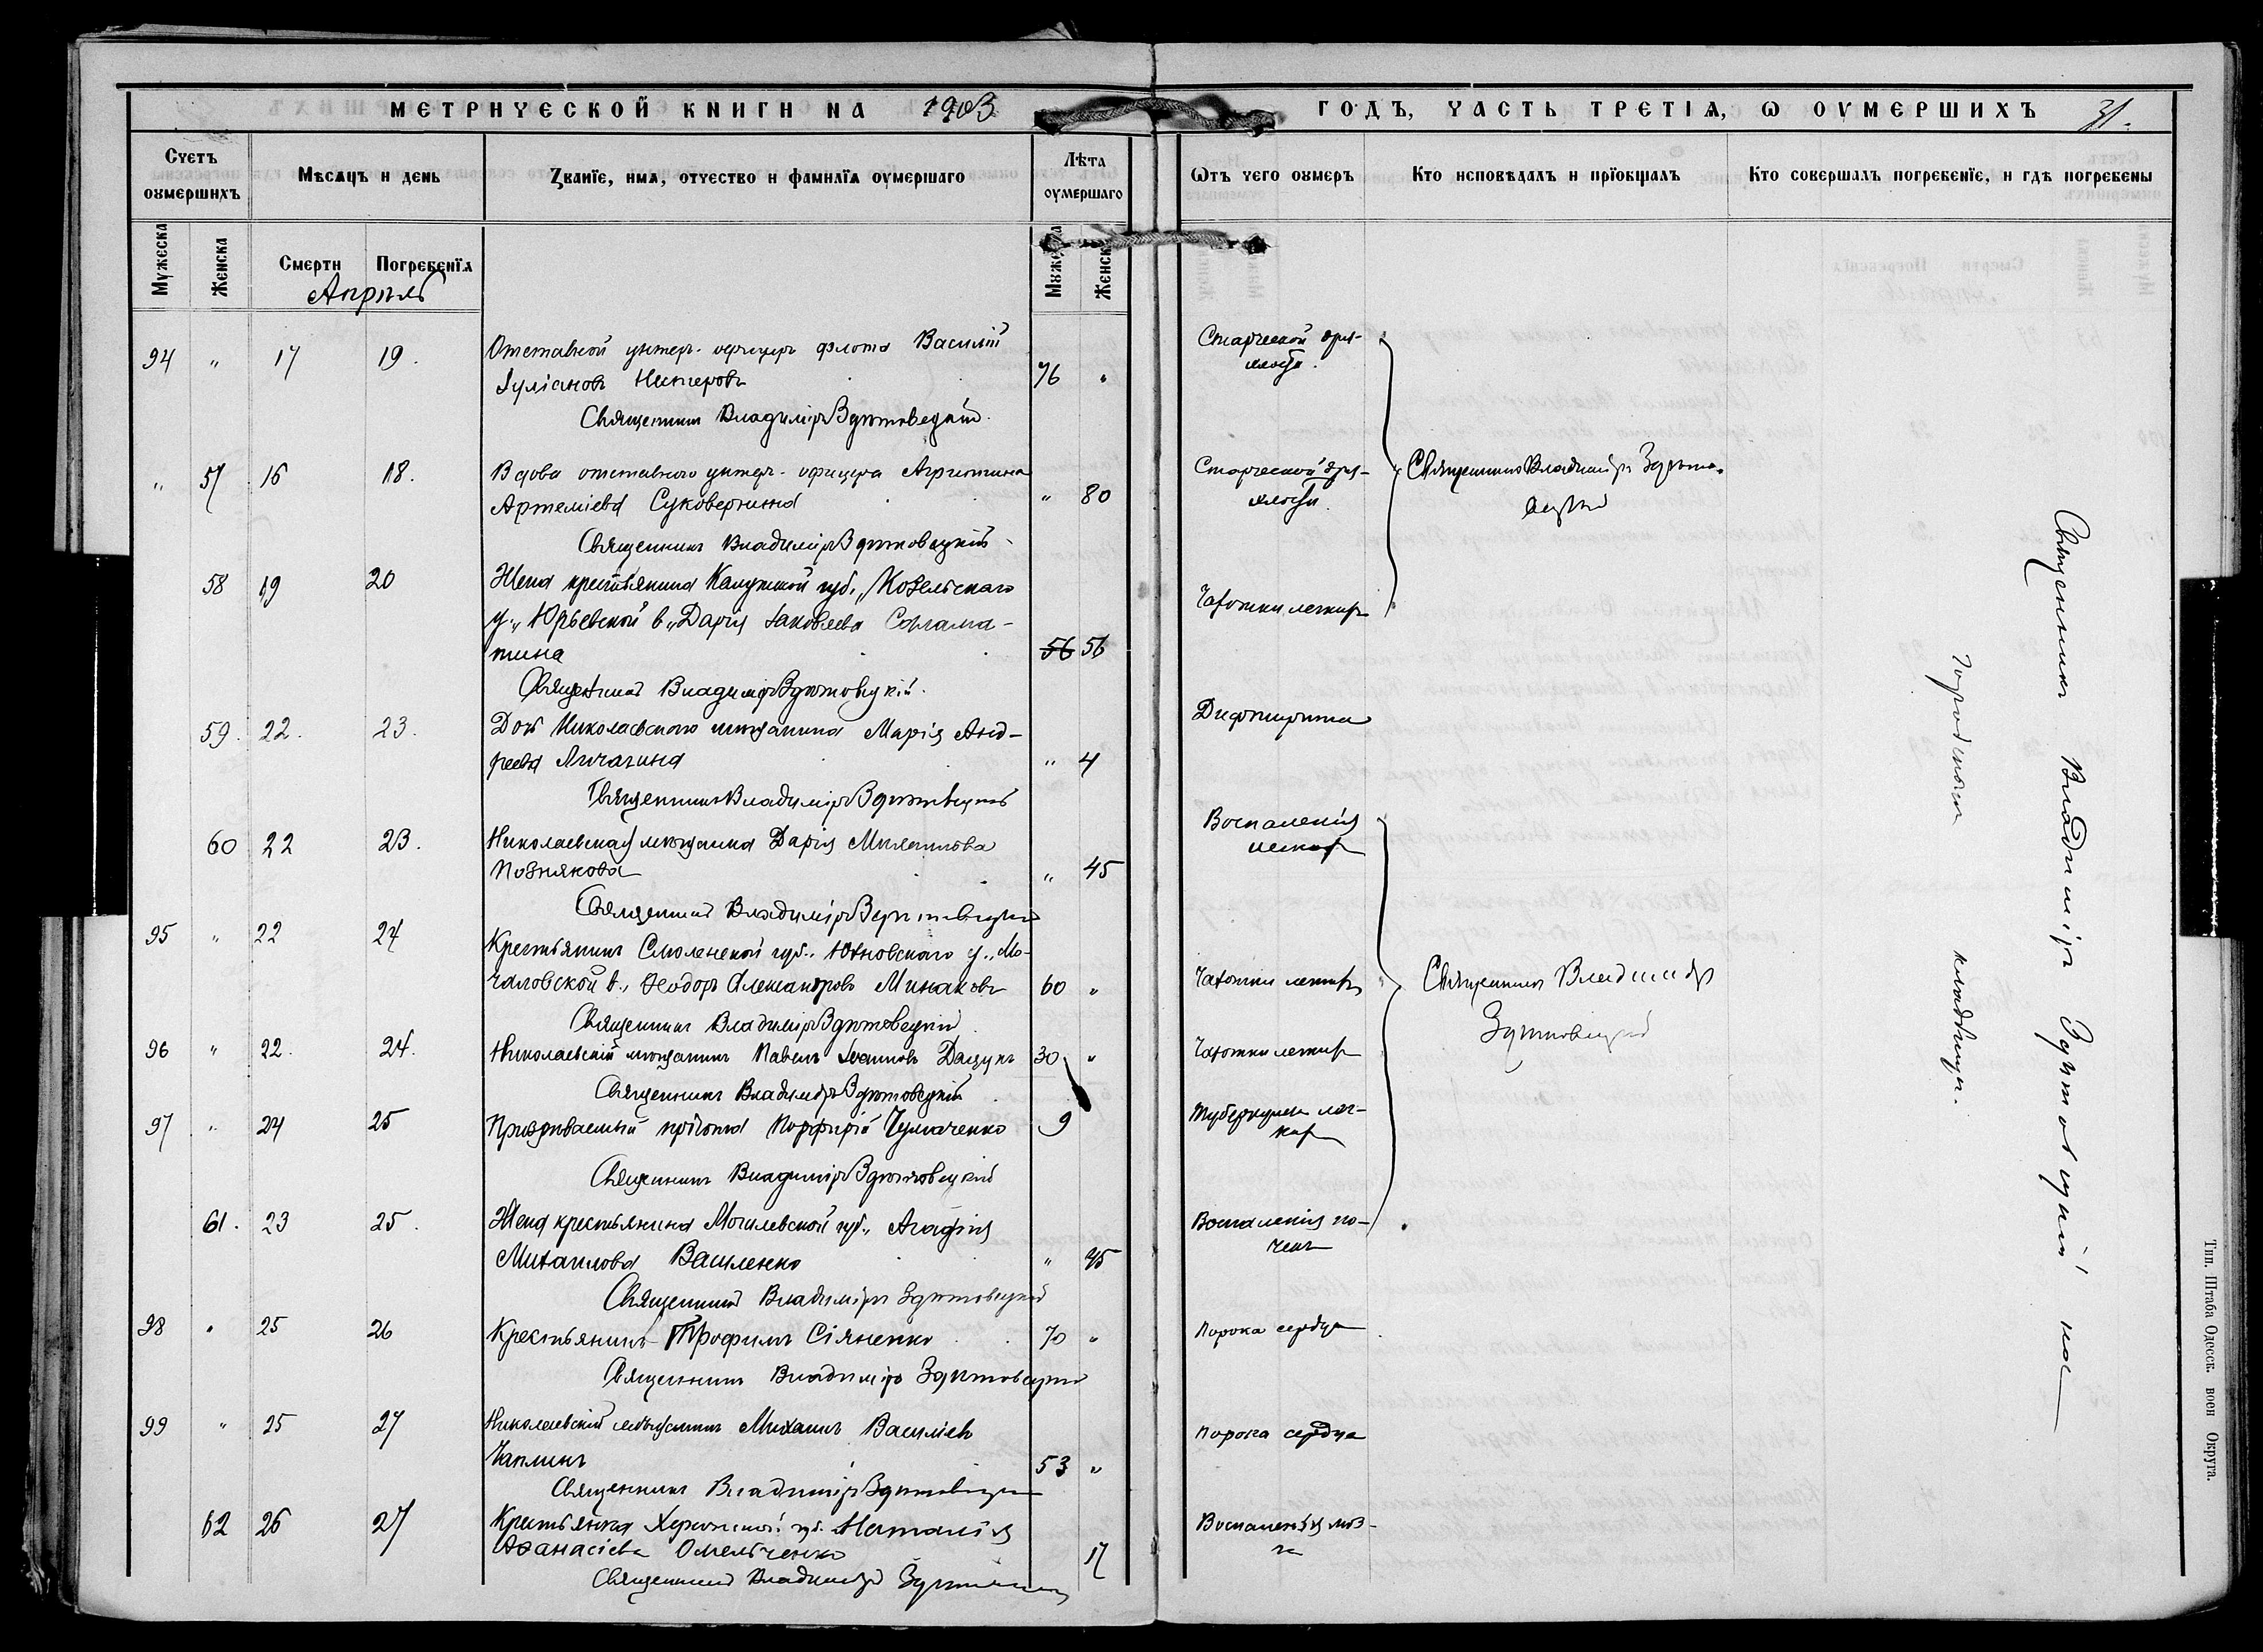 МЕТРИЧЕСКОЙ КНИГИ НА 1903
ГОДЪ, ЧАСТЬ ТРЕТІЯ, Ѡ ОУМЕРШИХЪ 31.
Счетъ оумершихъ
Мѣсяцъ и день
Званїе, имя, отчество и фамилїя оумершаго
Лѣта оумершаго
Ѿтъ чего оумеръ
Кто исповѣдалъ и прїобщалъ
Кто совершалъ погребенїе, и гдѣ погребены
Мужеска
Женска
Смерти
Погребенїя
Мужеска
Женска
Апрѣль
94 " 17 19. Отставной унтеръ-офицеръ флота Василій
Іуліановъ 76 " Старческой дря-
хлости.
Священникъ Владиміръ Здитовецкій.
" 57 16 18. Вдова отставного унтеръ-офицера Агрипина
Артеміева Суковеркина " 80 Старческой дря-
хлости.
Священникъ Владиміръ Здитовецкій
Священникъ Владиміръ Здито-
вецкій
58 19 20 Жена крестьянина Калужской губ., Козельскаго
у., Юрьевской в., Дарія Іаковлева
56 56 Чахотки легкихъ
Священникъ Владиміръ Здитовецкій.
59. 22. 23. Дочь Николаевскаго мѣщанина Марія Анд-
реева Личагина " 4 Дифтерита
Священникъ Владиміръ Здитовецкій
60 22 23. Николаевская мѣщанка Дарія
Познякова " 45 Воспаленія
легкихъ
Священникъ Владиміръ Здитовецкій
95 " 22 24 Крестьянинъ Смоленской губ., Юхновскаго у., Мо-
чаловской в., Ѳеодоръ Александровъ Минаковъ 60 " Чахотки легкихъ
Священникъ Владиміръ Здитовецкій
Священникъ Владиміръ
Здитовецкій
96 " 22. 24. Николаевскій мѣщанинъ Павелъ Іоанновъ Дацукъ 30 " Чахотки легкихъ
Священникъ Владиміръ Здитовецкій
97 " 24 25 Призрѣваемый пріюта Порфирій Чумаченко 9 Туберкулеза лег-
кихъ
Священникъ Владиміръ Здитовецкій
61. 23 25. Жена крестьянина Могилевской губ., Агафія
Михаилова Василенко " 45 Воспаленія по-
чекъ
Священникъ Владиміръ Здитовецкій
98 " 25 26 Крестьянинъ Трофимъ Сіяненко 70 " Порока сердца
Священникъ Владиміръ Здитовецкій
99 " 25 27 Николаевскій мѣщанинъ Михаилъ Василіевъ
Чаплинъ 53 " Порока сердца
Священникъ Владиміръ Здитовецкій
62 26 27 Крестьянка Херсонской губ. Наталія
Аѳанасіева Омельченко 17 Воспаленія моз-
га
Священникъ Владиміръ Здитовецкій
Священникъ Владиміръ Здитовецкій на
городскомъ кладбищѣ.
Тип. Штаба Одесск. воен Округа.